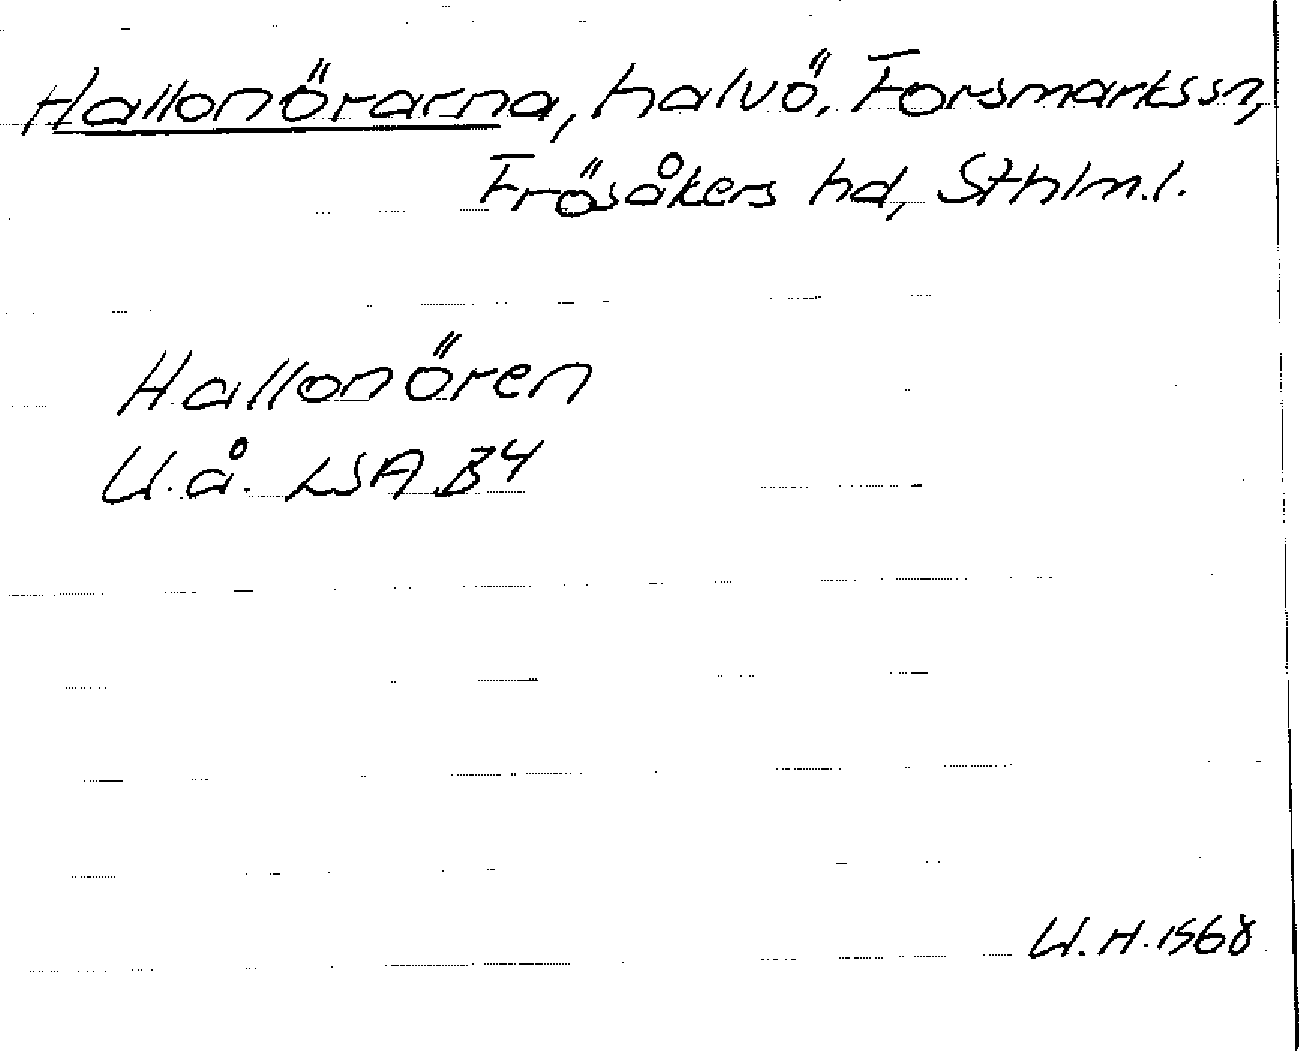 Hallonörarna, halvö, Forsmarks sn,
Frösåkers hd, Sthlm.l.
Hallonören
U.å. LSA B4
U.H. 1968